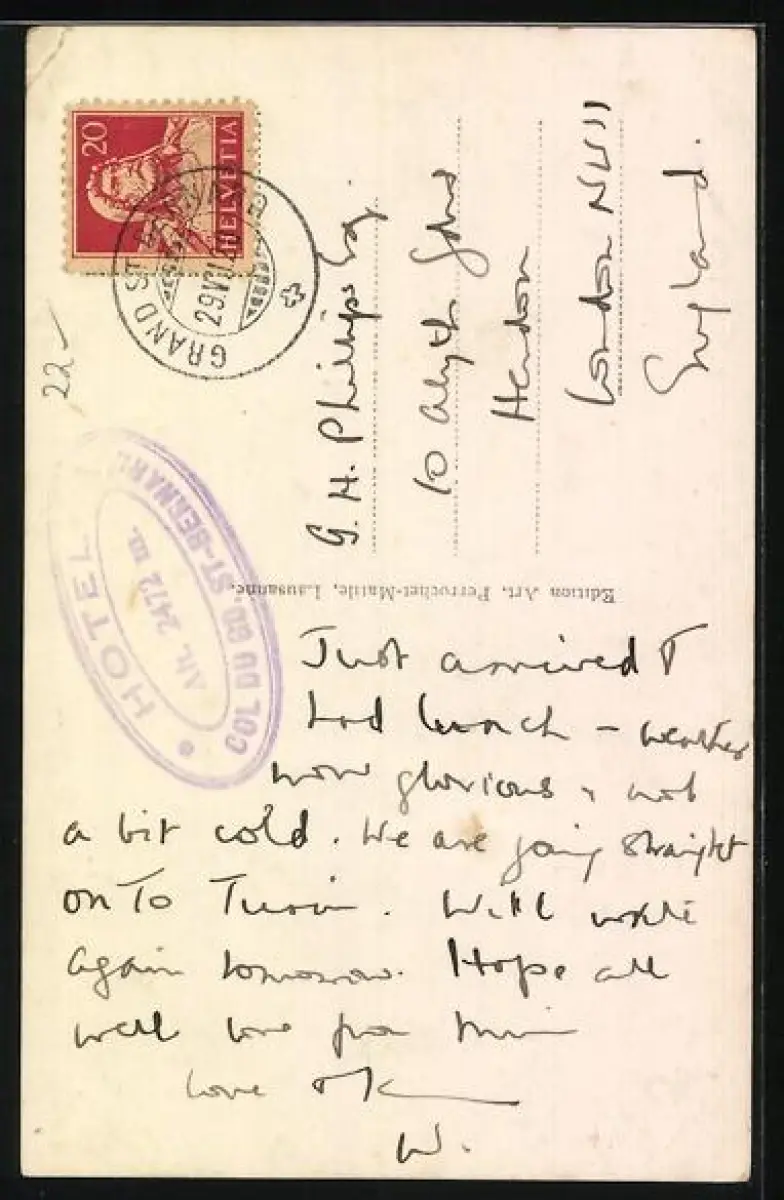 20
HELVETIA
GRAND ST
29.VII.2
22-
HOTEL
COL DU GD. ST-BERNARD
Alt. 2472 m.
G. H. Phillips Esq.
10 Alyth Gdns
Hendon
London NW11
England.
Edition Art. Perrochet-Matile, Lausanne.
Just arrived &
had lunch – weather
now glorious & not
a bit cold. We are going straight
on to Turin. Will write
again tomorrow. Hope all
well love from
love
W.